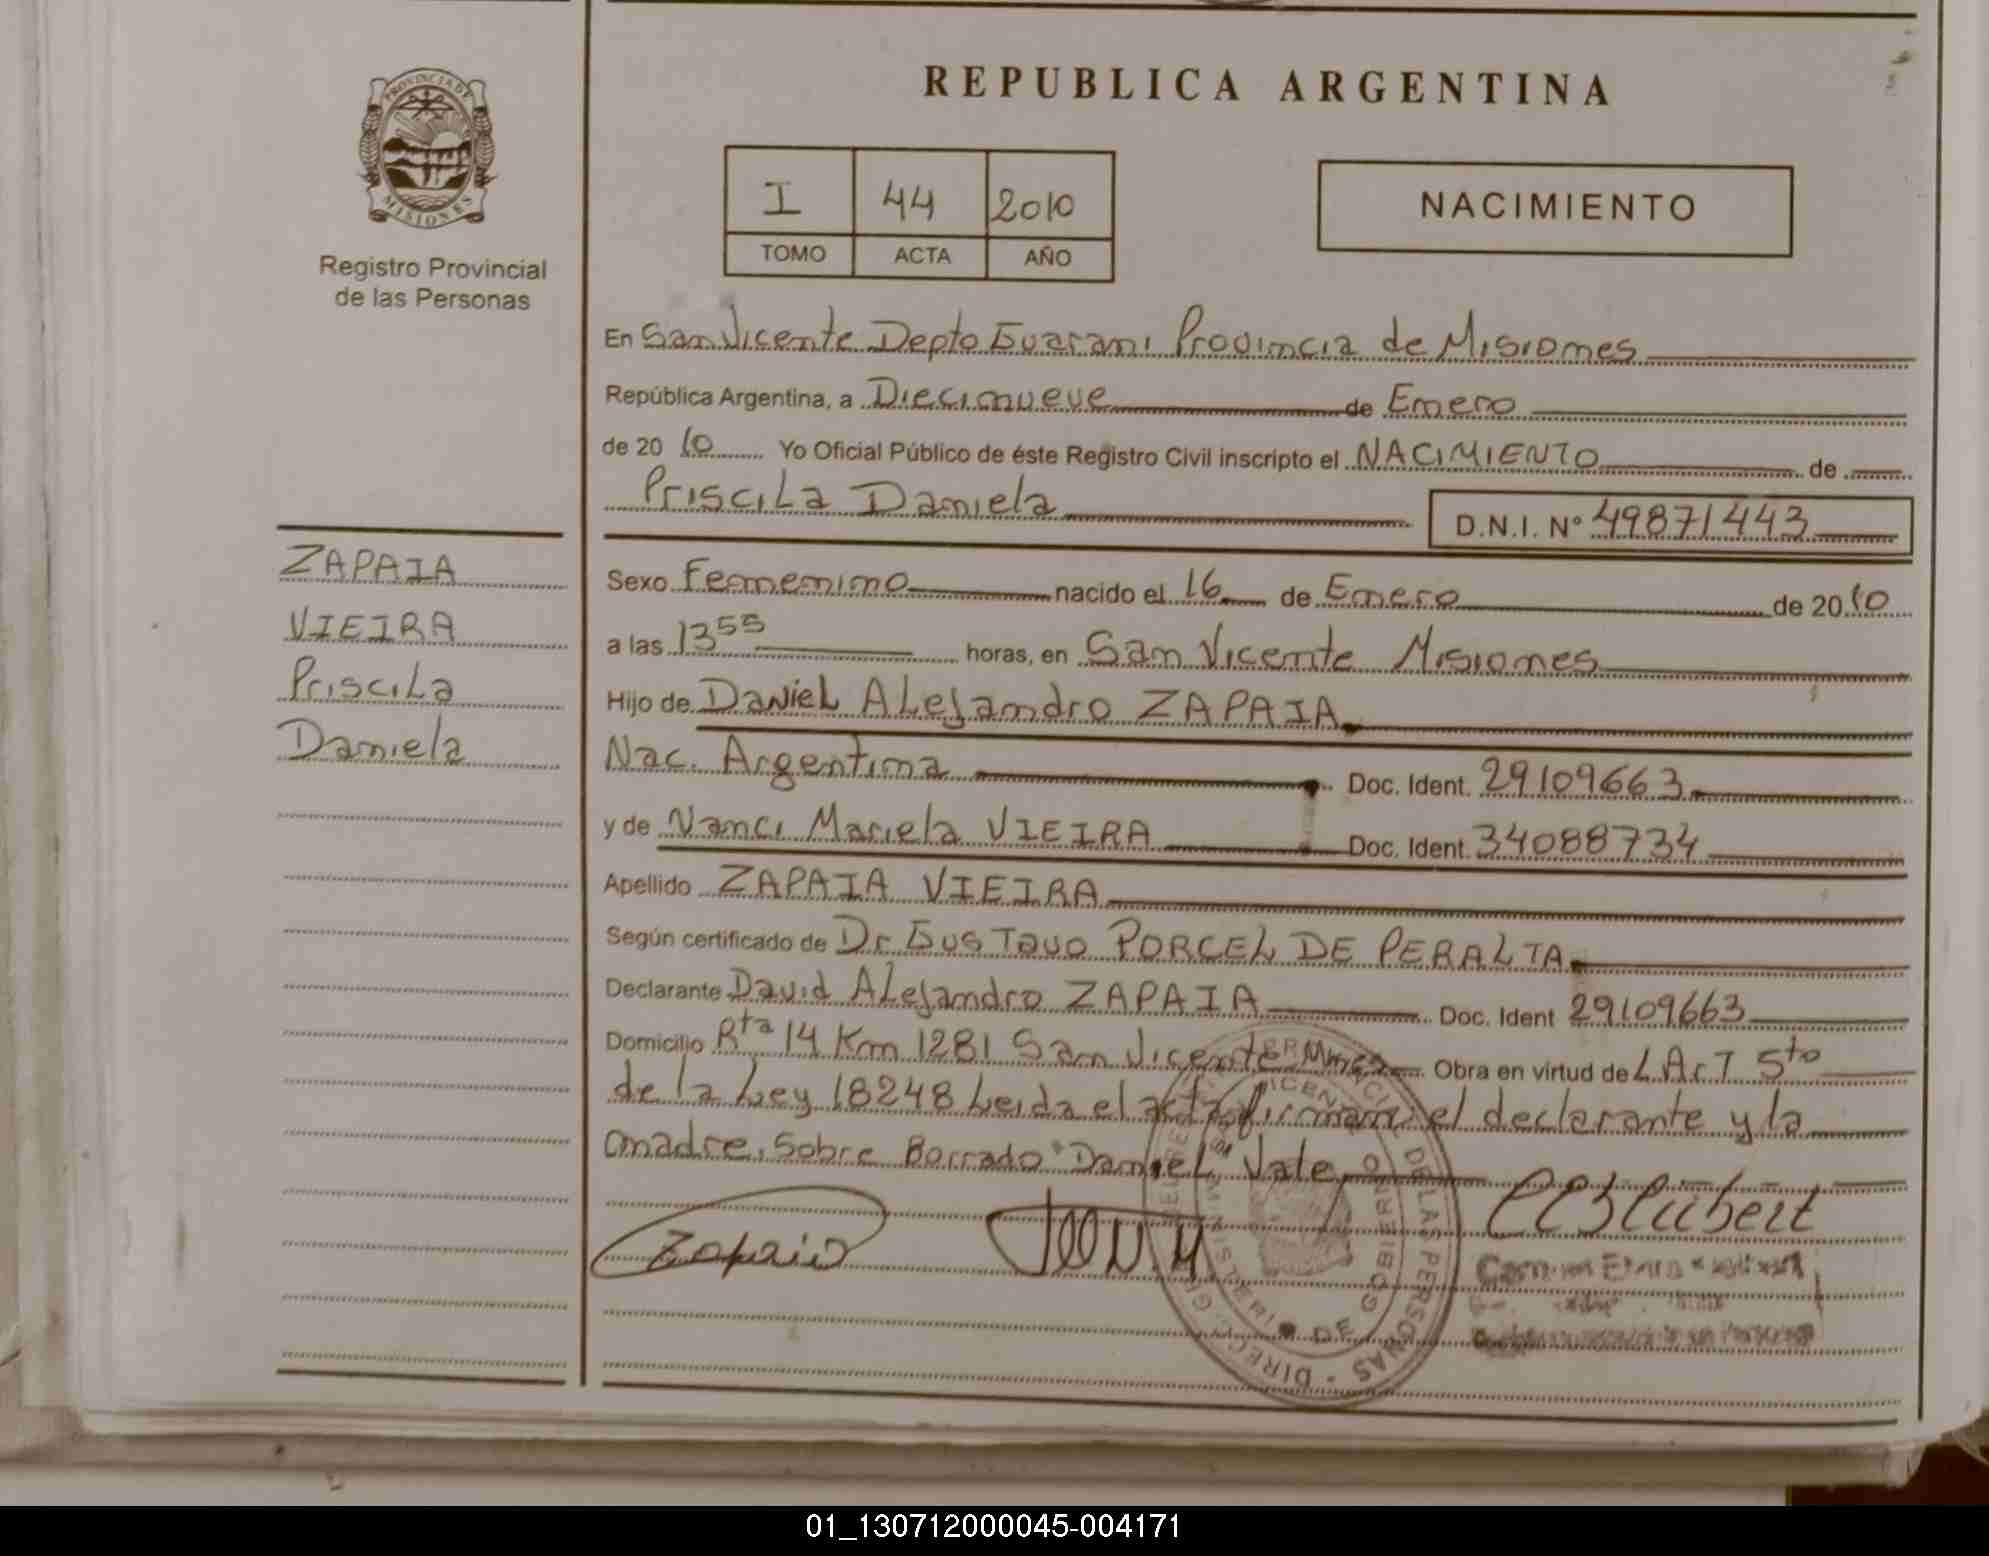 REPUBLICA ARGENTINA
PROVINCIA DE
MISIONES
Registro Provincial
de las Personas
I 44 2010
TOMO ACTA AÑO
NACIMIENTO
En San Vicente Depto Guarani Provincia de Misiones
República Argentina, a Diecinueve de Enero
de 20 10 Yo Oficial Público de éste Registro Civil inscripto el NACIMIENTO de
Priscila Daniela
D.N.I. Nº 49871443
ZAPAIA
VIEIRA
Priscila
Daniela
Sexo Femenino nacido el 16 de Enero de 20 10
a las 13 55 horas, en San Vicente Misiones
Hijo de Daniel Alejandro ZAPAIA
Nac. Argentina Doc. Ident. 29109663
y de Nanci Mariela VIEIRA Doc. Ident. 34088734
Apellido ZAPAIA VIEIRA
Según certificado de Dr Gustavo PORCEL DE PERALTA
Declarante David Alejandro ZAPAIA Doc. Ident 29109663
Domicilio Rta 14 Km 1281 San Vicente Mnes Obra en virtud de L Art 5to
de la Ley 18248 Leida el acta firman el declarante y la
madre. Sobre Borrado "Daniel" Vale
Zapaia
01_130712000045-004171